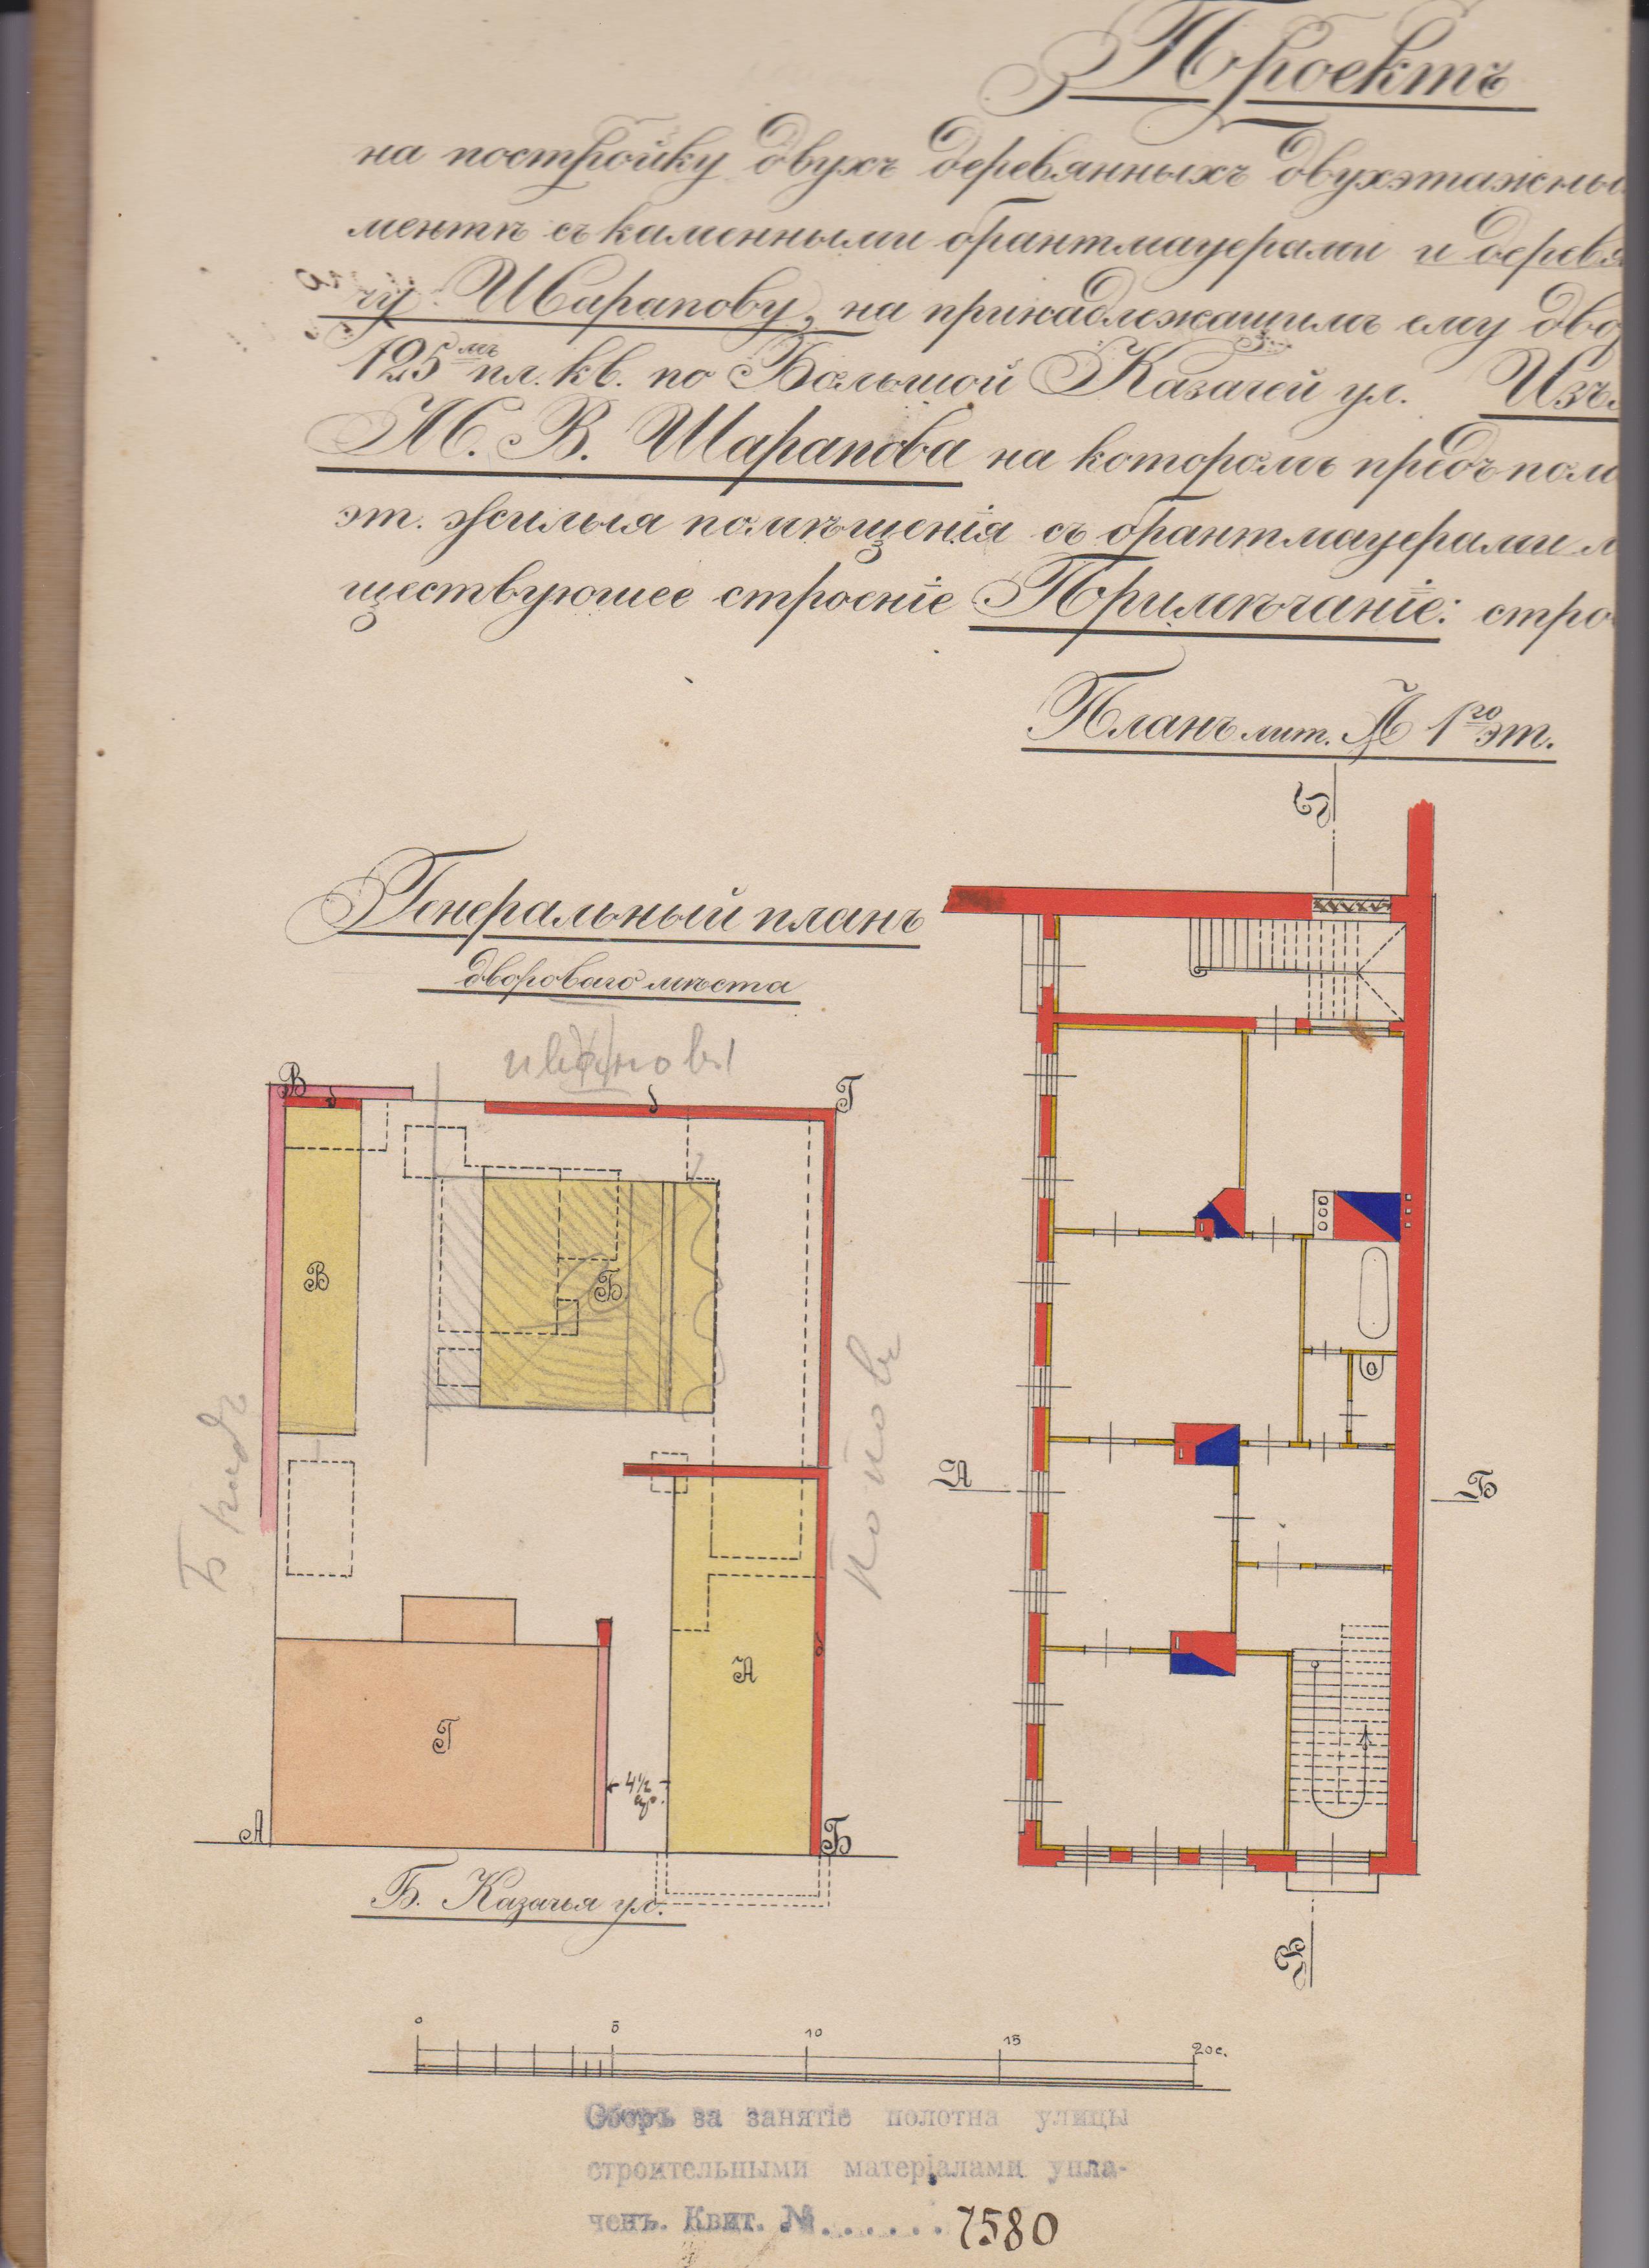 Проектъ
на постройку двухъ деревянныхъ двухэтажны
ментѣ съ каменными брантмауерами и деревя
чу Шарапову, на принадлежащимъ ему дво
125мъ пл. кв. по Большой Казачей ул. Изъ
М. В. Шарапова на которомъ предъполо
эт. жилыя помѣщенія съ брантмауерами
ществующее строеніе Примѣчаніе: стро
Планъ лит. А 1го эт.
Генеральный планъ
двороваго мѣста
В
Г
В
Б
Поповъ
А
Г
4½
А
Б
Б. Казачья ул.
Г
А
Б
В
0 5 10 15 20 с.
Сборъ за занятіе полотна улицы
строительными матеріалами упла-
ченъ. Квит. № ....... 7580